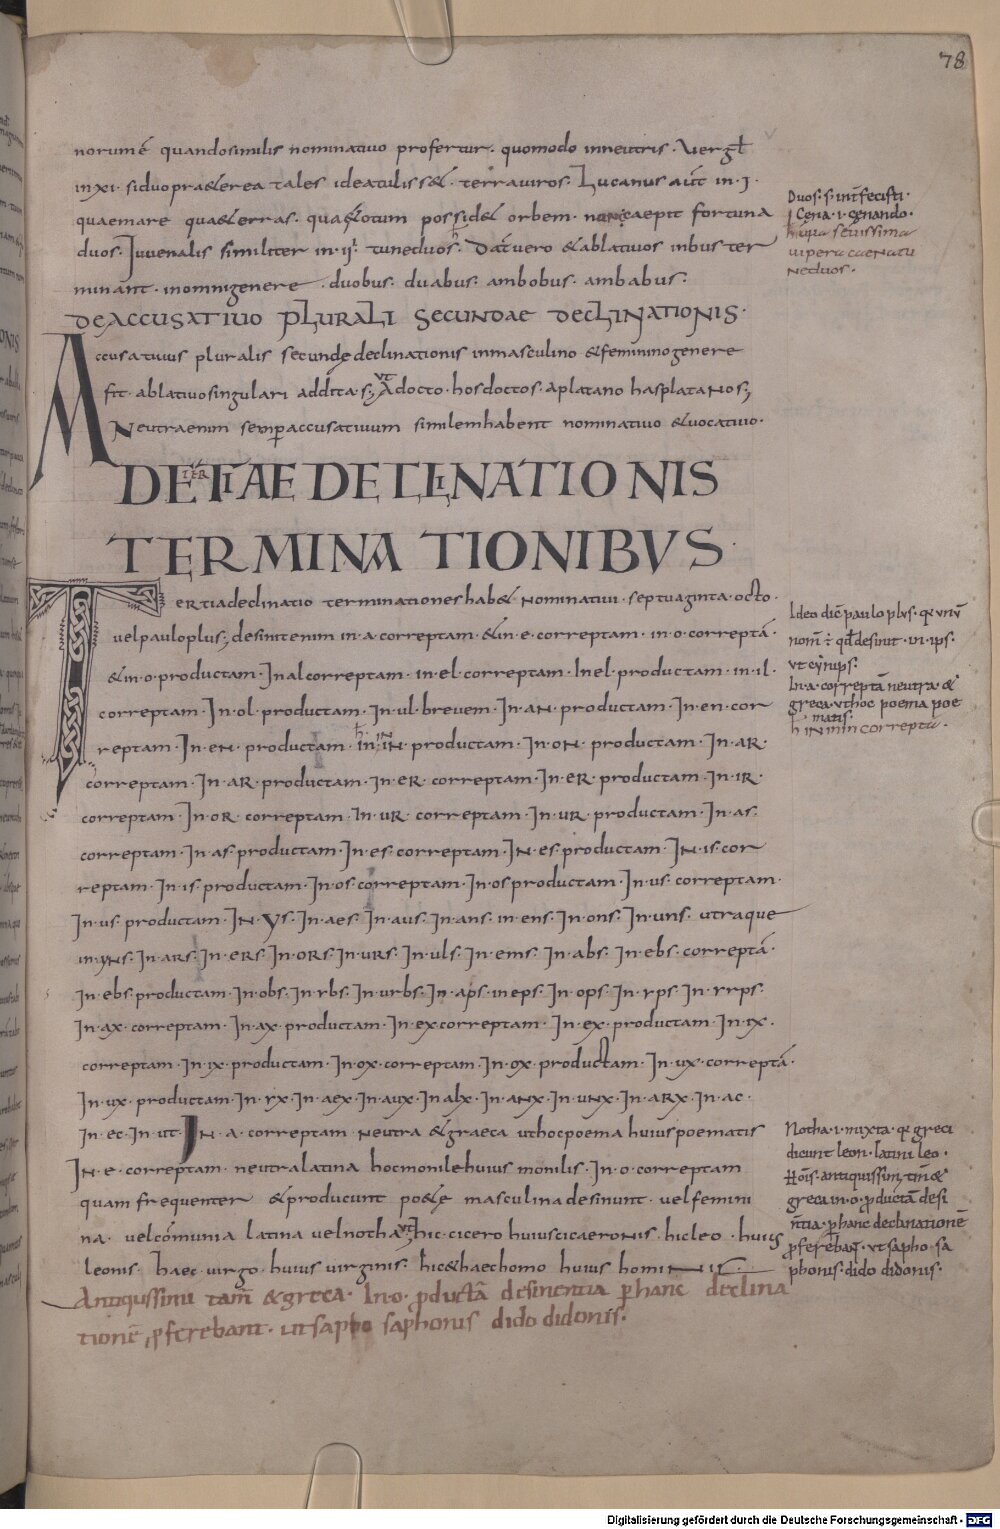 78
norumē quandosimilis nominatiuo profertur· quomodo inneutris· Uergł
in·xi· siduopra&erea tales ideatulisse&· terrauiros· Lucanus aūt in·j·
quaemare qua&erras· quae&otum possid& orbem· noncaepit fortuna
duos· Juuenalis similiter in·ij· tuneduos· Dat̄uero &ablatiuos inbuster
minant· inomnigenere· duobus· duabus· ambobus· ambabus·
DE ACCUSATIUO PLURALI SECUNDAE DECLINATIONIS·
Accusatiuus pluralis secundę declinationis inmasculino &femininogenere
fit· ablatiuosingulari addita·s; ut Adocto· hosdoctos· aplatano hasplatanos;
Neutraenim semꝑaccusatiuum similemhabent nominatiuo &uocatiuo·
DE TERTIAE DECLINATIONIS
TERMINATIONIBVS·
Tertiadeclinatio terminationeshab& nominatiui· septuaginta·octo·
uelpauloplus; desinitenim in·a·correptam· &in·e·correptam· in·o·correptā·
&in·o·productam· Jnalcorreptam· in·el·correptam· Inel·productam· in·il·
correptam· Jn·ol·productam· Jn·ul·breuem· Jn·an·productam· Jn·en·cor
reptam· Jn·en·productam· in·in·productam· Jn·on·productam· Jn·ar·
correptam· Jn·ar·productam· Jn·er·correptam· Jn·er·productam· Jn·ir·
correptam· Jn·or·correptam· In·ur·correptam· Jn·ur·productam· Jn·as·
correptam· Jn·as·productam· Jn·es·correptam· Jn·es·productam· Jn·is·cor
reptam· Jn·is·productam· Jn·os·correptam· Jn·osproductam· Jn·us·correptam·
Jn·us·productam· Jn·ys· Jn·aes· Jn·aus· Jn·ans· in·ens· Jn·ons· Jn·uns· utraque
in·yns· Jn·ars· Jn·ers· Jn·ors· Jn·urs· Jn·uls· Jn·ems· Jn·abs· Jn·ebs·correptā·
Jn·ebs·productam· Jn·obs· Jn·rbs· Jn·urbs· Jn·aps· ineps· Jn·ops· Jn·rps· Jn·rrps·
Jn·ax·correptam· Jn·ax·productam· Jn·excorreptam· Jn·ex·productam· Jn·ix·
correptam· Jn·ix·productam· Jn·ox·correptam· Jn·ox·productam· Jn·ux·correptā·
Jn·ux·productam· Jn·yx· Jn·aex· Jn·aux· Jnalx· Jn·anx· Jn·unx· Jn·arx· Jn·ac·
Jn·ec· Jn·ut· Jn·a·correptam neutra &graeca uthocpoema huiuspoematis
Jn·e·correptam· neutralatina hocmonilehuius monilis· Jn·o·correptam
quam frequenter &producunt po&ę masculinadesinunt· uelfemini
na· uelcōmunia latina uelnotha· ut hic·cicero huiuscicaeronis· hicleo· huius
leonis· haec·uirgo· huius uirginis· hic&haechomo huius hominis·
Antiquissimi tam̄ &greca· In·o·ꝓductā desinentia ꝑhanc declina
tionē ꝓferebant· utsapho saphonis dido didonis·
Duos·s·int̄fecisti·
Cena·i·cenando·
seuissima
uipera caenatu
neduos·
Ideo dic̄ paulo plvs· qr unū
nom̄ ē qđ desinit·in·ips·
vt cynips·
In·a·correptā neutra·&
greca·vthoc poema poe
matis·
Notha·i·mixta·qr greci
dicunt leon·latini leo·
antiquissimi tam̄&
greca in·o·ꝓductā desi
nentia·ꝑhanc declinationē
ꝓferebant·vtsapho·sa
phonis·dido didonis·
Digitalisierung gefördert durch die Deutsche Forschungsgemeinschaft - DFG